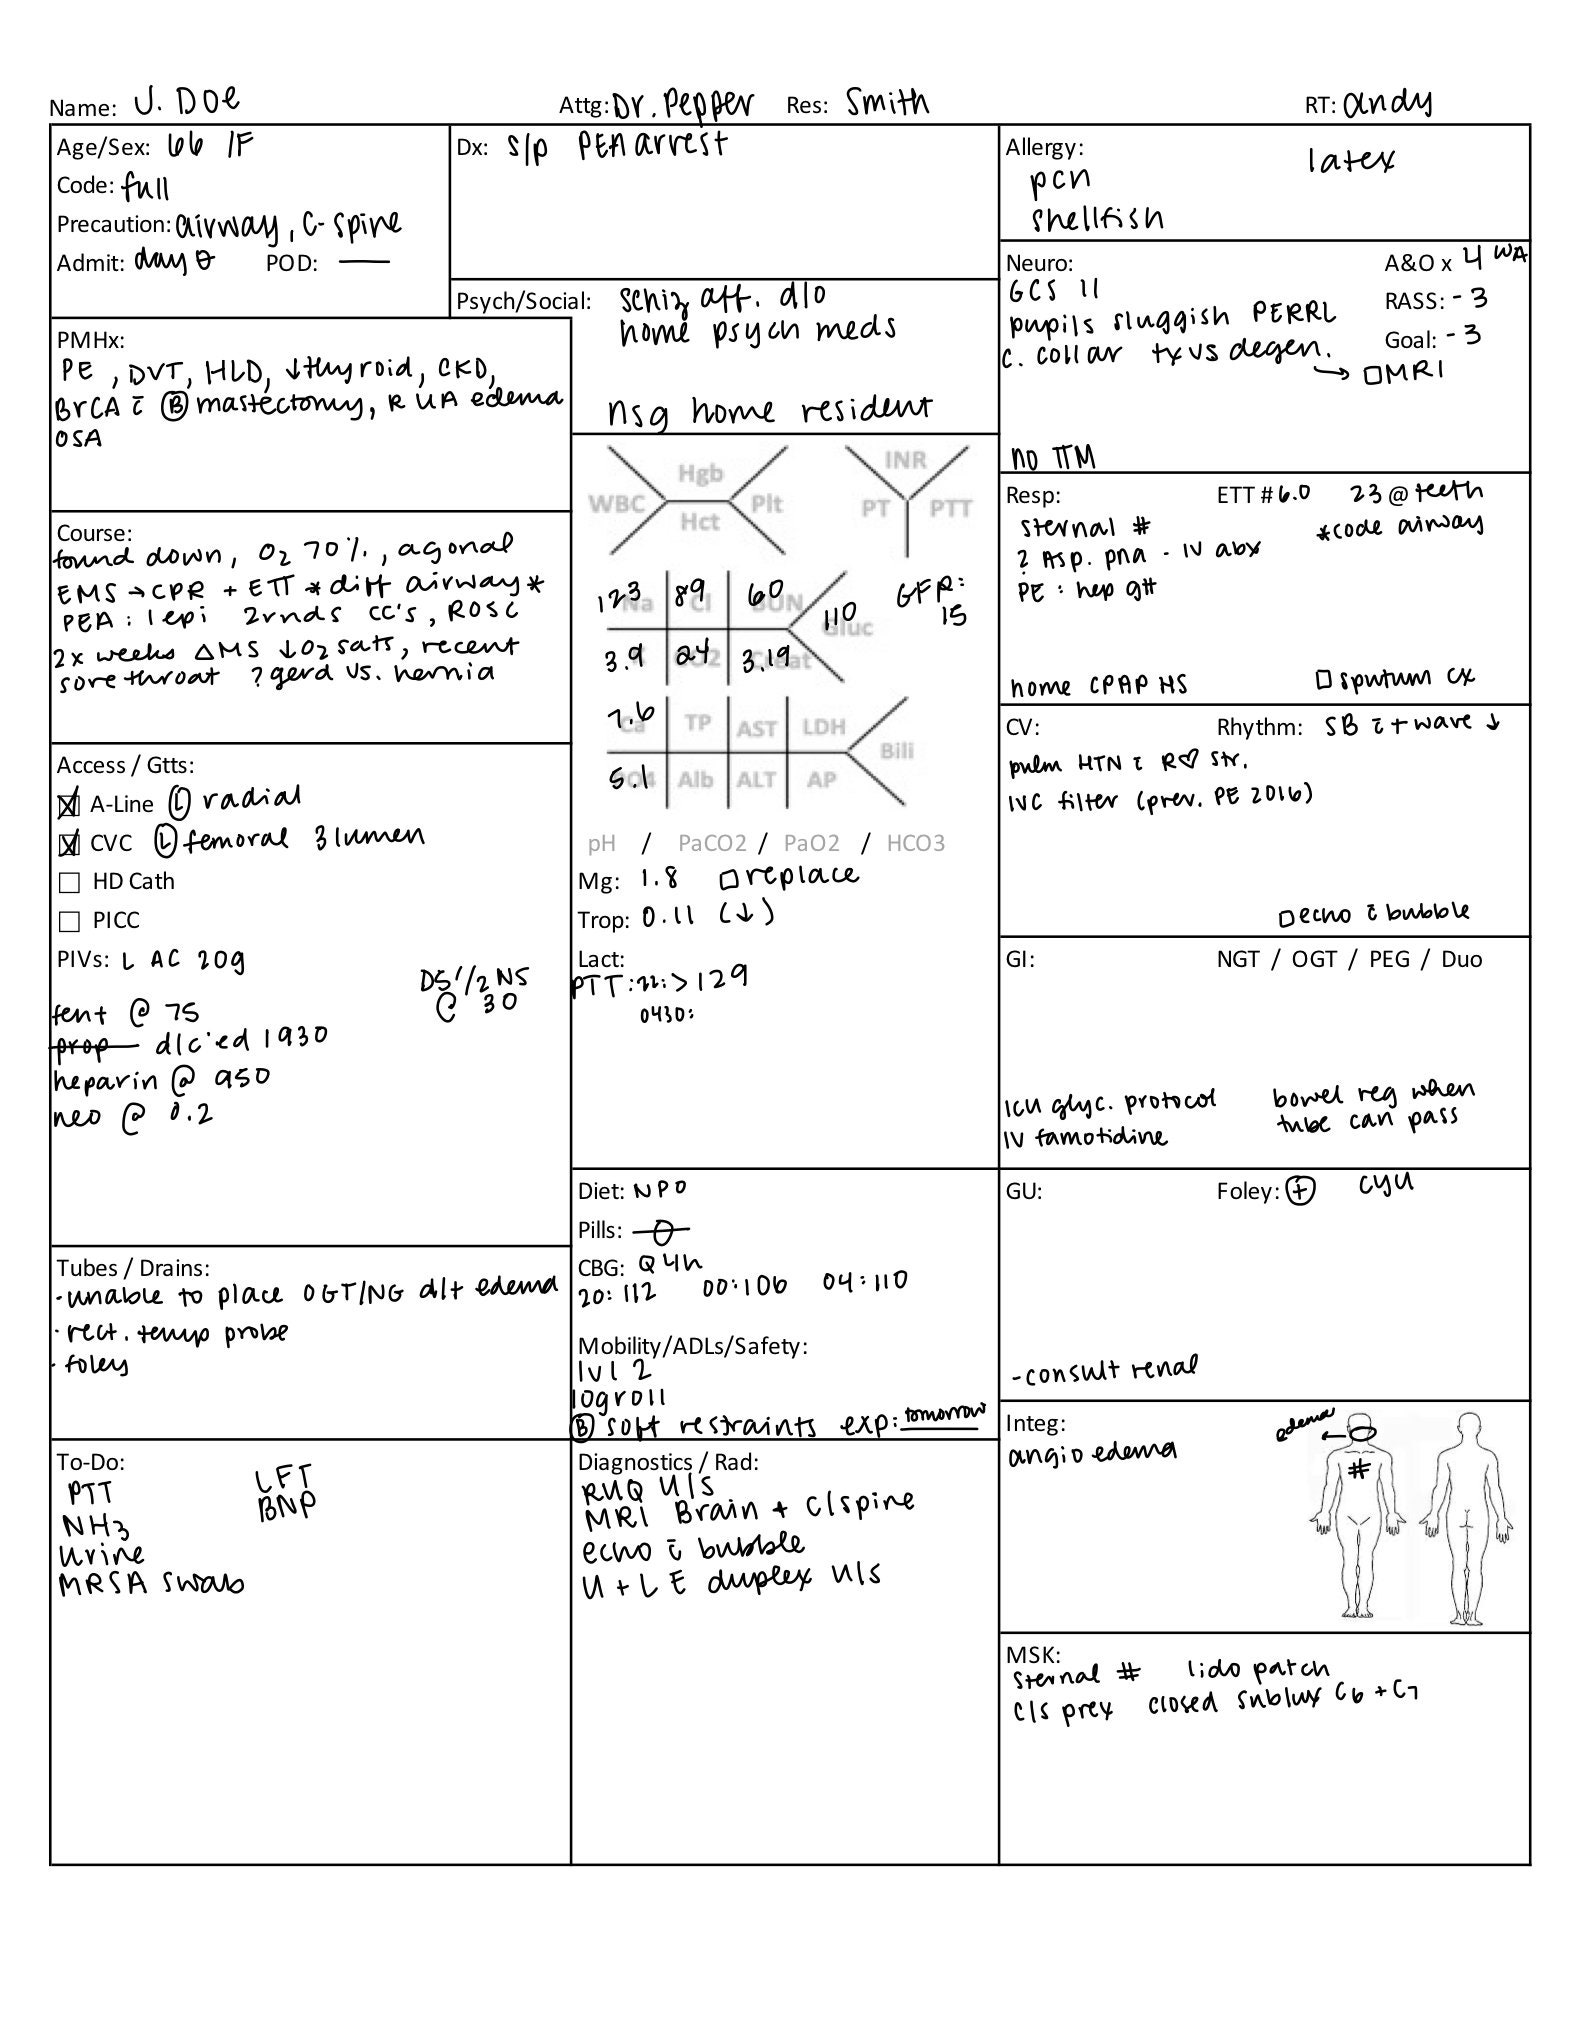 Name: J. Doe Attg: Dr. Pepper Res: Smith RT: andy
Age/Sex: 66 / F
Code: full
Precaution: airway, C-spine
Admit: day 0 POD: —
Dx: s/p PEA arrest
Allergy: latex
pcn
shellfish
Psych/Social: schiz aff. d/o
home psych meds
nsg home resident
Neuro: A&O x 4 WA
GCS 11 RASS: -3
pupils sluggish PERRL Goal: -3
c. collar tx vs degen.
→ □ MRI
no TTM
PMHx:
PE, DVT, HLD, ↓thyroid, CKD,
BrCA c̄ Ⓑ mastectomy, R UA edema
OSA
Course:
found down, O2 70%, agonal
EMS → CPR + ETT *diff airway*
PEA: 1 epi 2 rnds cc's, ROSC
2x weeks ΔMS ↓O2 sats, recent
sore throat ? gerd vs. hernia
Hgb
WBC Plt
Hct
INR
PT PTT
123 Na 89 Cl 60 BUN 110 Gluc GFR: 15
3.9 K 24 CO2 3.19 Creat
7.6 Ca TP AST LDH Bili
5.1 PO4 Alb ALT AP
pH / PaCO2 / PaO2 / HCO3
Mg: 1.8 □ replace
Trop: 0.11 (↓)
Lact:
PTT: 22: >129
0430:
Resp: ETT # 6.0 23 @ teeth
sternal # *code airway
? Asp. pna - IV abx
PE: hep gtt
home CPAP HS □ sputum cx
Access / Gtts:
☒ A-Line Ⓛ radial
☒ CVC Ⓛ femoral 3 lumen
□ HD Cath
□ PICC
PIVs: L AC 20g
D5 1/2 NS
@ 30
fent @ 75
prop d/c'ed 1930
heparin @ 950
neo @ 0.2
CV: Rhythm: SB c̄ t wave ↓
pulm HTN c̄ R♡ str.
IVC filter (prev. PE 2016)
□ echo c̄ bubble
GI: NGT / OGT / PEG / Duo
ICU glyc. protocol bowel reg when
IV famotidine tube can pass
Diet: NPO
Pills: 0
CBG: Q4h
20: 112 00: 106 04: 110
Mobility/ADLs/Safety:
lvl 2
logroll
Ⓑ soft restraints exp: tomorrow
GU: Foley: ⊕ CYU
-consult renal
Tubes / Drains:
·unable to place OGT/NG d/t edema
·rect. temp probe
·foley
Integ: edema
angioedema
#
To-Do:
PTT LFT
NH3 BNP
Urine
MRSA swab
Diagnostics / Rad:
RUQ U/S
MRI Brain + C/spine
echo c̄ bubble
U + L E duplex u/s
MSK:
sternal # lido patch
C/S prex closed sublux C6 + C7